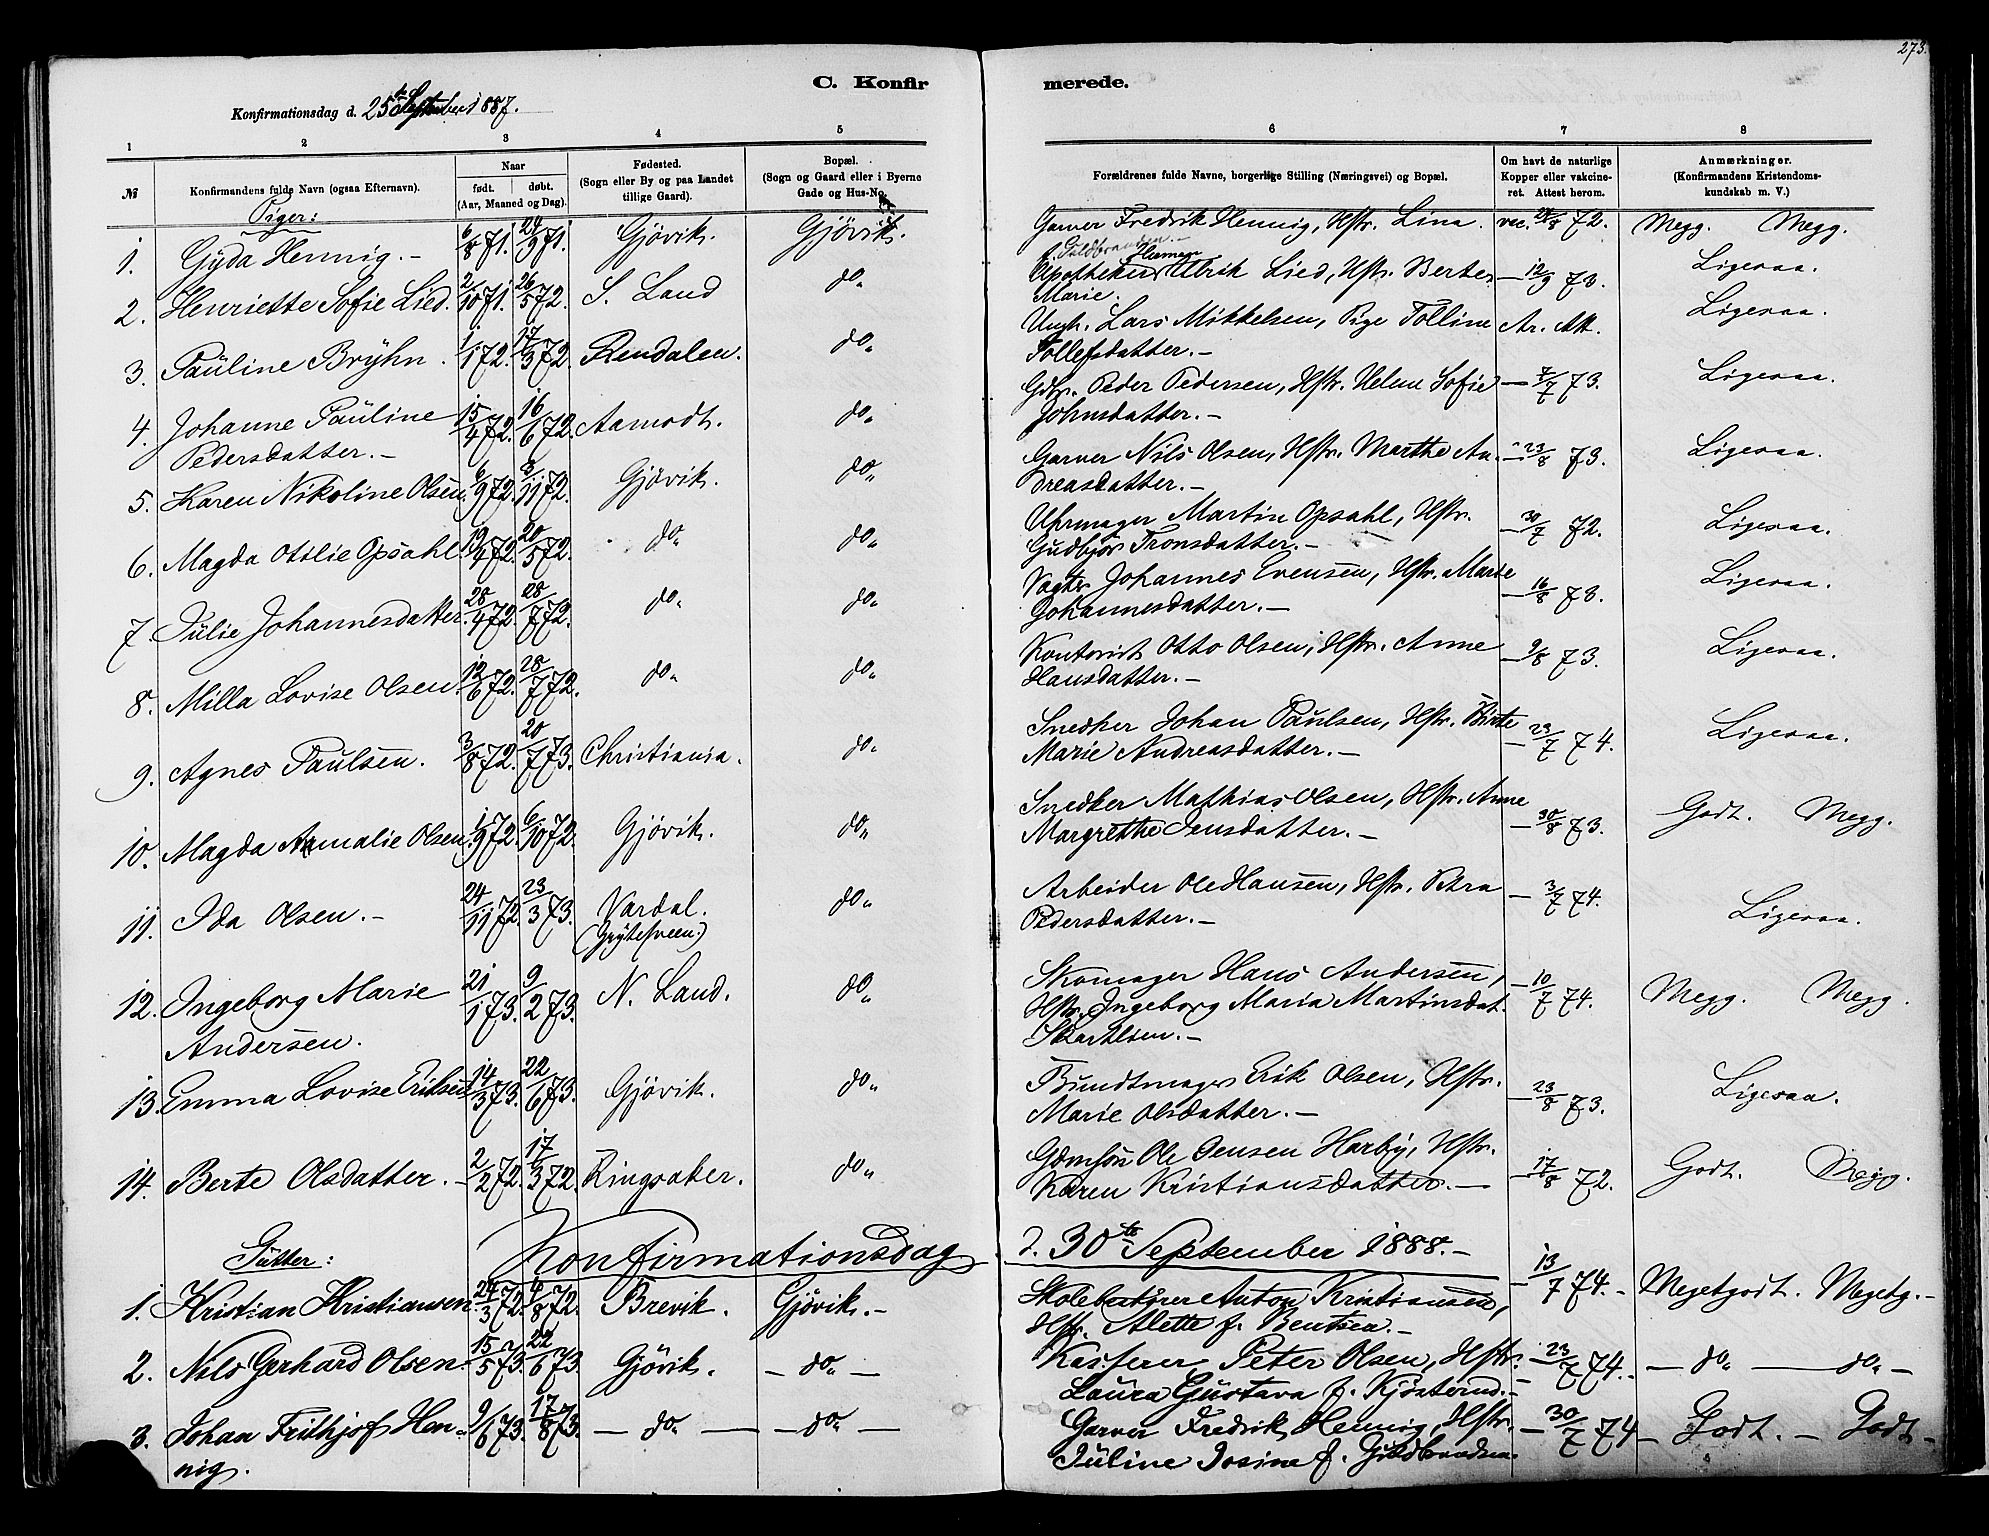 273.
C. Konfirmerede.
Konfirmationsdag d. 25de September 1887.
1 2 3 4 5 6 7 8
№ Konfirmandens fulde Navn (ogsaa Efternavn). Naar født. døbt. (Aar, Maaned og Dag). Fødested. (Sogn eller By og paa Landet tillige Gaard). Bopæl. (Sogn og Gaard eller i Byerne Gade og Hus-No. Forældrenes fulde Navne, borgerlige Stilling (Næringsvei) og Bopæl. Om havt de naturlige Kopper eller vakcineret. Attest herom. Anmærkninger. (Konfirmandens Kristendomskundskab m. V.)
Piger:
1. Gyda Hennig. 6/8 71. 24/9 71. Gjövik. Gjövik. Garver Fredrik Hennig, Hstr. Lina f. Guldbrandsen. vac. 28/8 72. Megg. Megg.
2. Henriette Sofie Lied. 2/10 71. 26/5 72. S. Land do. Apotheker Herman Ulrik Lied, Hstr. Berte Marie. 12/9 73. Ligesaa.
3. Pauline Bryhn. 1/1 72. 17/3 72. Rendalen. do. Ungk. Lars Mikkelsen, Pige Tolline Tollefsdatter. Ar. Att. Ligesaa.
4. Johanne Pauline Pedersdatter. 15/4 72. 16/6 72. Aamodt. do. Gdbr. Peder Pedersen, Hstr. Helene Sofie Johnsdatter. 7/7 73. Ligesaa.
5. Karen Nikoline Olsen 6/9 72. 3/11 72. Gjövik. do. Garver Nils Olsen, Hstr. Marthe Andreasdatter. 23/8 73. Ligesaa.
6. Magda Otilie Opsahl 19/4 72. 20/5 72. do. do. Uhrmager Martin Opsahl, Hstr. Gudbjör Tronsdatter. 30/7 72. Ligesaa.
7. Julie Johannesdatter. 28/4 72. 28/7 72. do. do. Vagter Johannes Evensen, Hstr. Marie Johannesdatter. 16/8 73. Ligesaa.
8. Milla Lovise Olsen. 12/6 72. 28/7 72. do. do. Kontorist Otto Olsen, Hstr. Anne Hansdatter. 9/8 73. Ligesaa.
9. Agnes Paulsen. 3/8 72. 20/7 73. Christiania. do. Snedker Johan Paulsen, Hstr. Birte Marie Andreasdatter. 23/7 74. Ligesaa.
10. Magda Amalie Olsen. 1/9 72. 6/10 72. Gjövik. do. Snedker Mathias Olsen, Hstr. Anne Margrethe Jensdatter. 30/8 73. Godt. Megg.
11. Ida Olsen. 24/11 72. 23/3 73. Vardal. (Grytesveen.) do. Arbeider Ole Hansen, Hstr. Petra Pedersdatter. 3/7 74. Ligesaa.
12. Ingeborg Marie Andersen. 21/1 73. 9/2 73. N. Land. do. Skomager Hans Andersen, Hstr. Ingeborg Maria Martinsdat. 10/7 74. Megg. Megg.
13. Emma Lovise Eriksen 14/3 73. 22/6 73. Gjövik. do. Bundtmager Erik Olsen, Hstr. Marie Olsdatter. 23/8 73. Ligesaa.
14. Berte Olsdatter. 2/2 72. 17/3 72. Ringsaker. do. Gdmsön Ole Jensen Harby, Hstr. Karen Kristiansdatter. 17/8 72. Godt. Megg.
Gutter: Konfirmationsdag d. 30te September 1888.
1. Kristian Kristiansen. 24/3 72. 4/8 72. Brevik. Gjövik. Skolebestÿrer Anton Kristiansen, Hstr. Alette f. Bentsen. 13/7 74. Megetgodt. Megetg.
2. Nils Gerhard Olsen 15/5 73. 22/6 73. Gjövik. do. Kasserer Peter Olsen, Hstr. Laura Gustava f. Kjösterud. 23/7 74. do. do.
3. Johan Frithjof Hennig. 9/6 73. 17/8 73. do. do. Garver Fredrik Hennig, Hstr. Juline Josine f. Guldbrandsen. 30/7 74 Godt. Godt